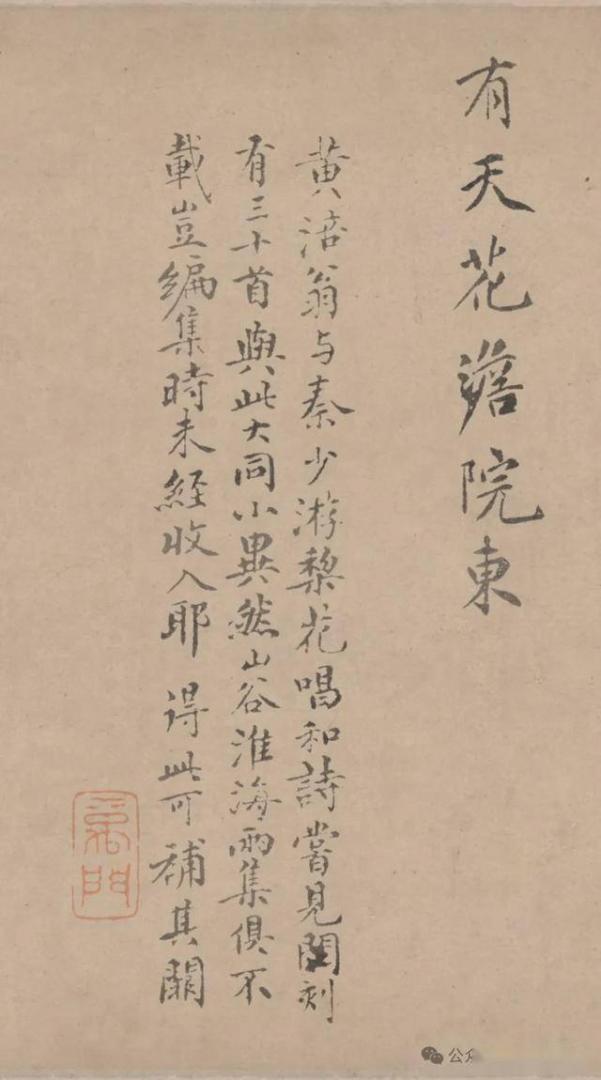 有天花院東
黄涪翁与秦少游棃花唱和詩嘗見刻
有三十首與此大同小異然山谷淮海兩集俱不
載豈編集時未經收入耶 得此可補其闕
公